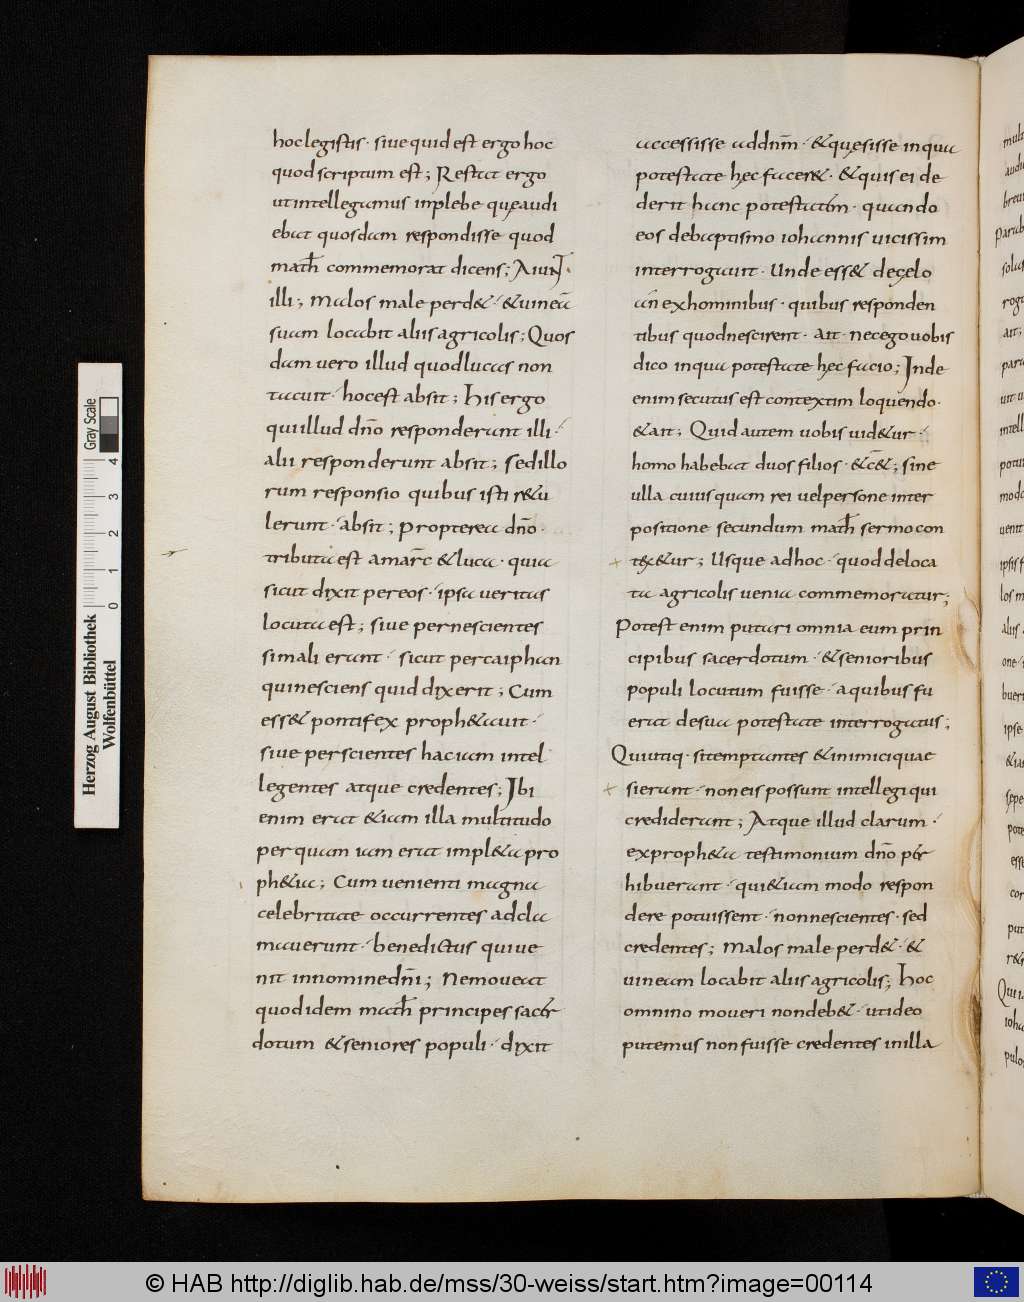 hoc legistis · siue quid est ergo hoc
quod scriptum est ; Restat ergo
ut intellegamus inplebe quęaudi
ebat quosdam respondisse quod
math̅ commemorat dicens ; Aiunt ·
illi ; malos male perd& · & uineā
suam locabit aliis agricolis ; Quos
dam uero illud quod lucas non
tacuit · hoc est absit ; His ergo
qui illud dn̅o responderunt illi ·
alii responderunt absit ; sed illo
rum responsio quibus isti r&u
lerunt · absit ; propterea dn̅o ·
tributa est a marc̅ & luca · quia
sicut dixit per eos · ipsa ueritas
locuta est ; siue per nescientes
si mali erant · sicut per caiphan
qui nesciens quid dixerit ; Cum
ess& pontifex proph&auit ·
siue per scientes hac iam intel
legentes atque credentes ; Ibi
enim erat & iam illa multitudo
per quam iam erat impl&a pro
ph&ia ; Cum uenienti magna
celebritate occurrentes adcla
mauerunt · benedictus qui ue
nit in nomine dn̅i ; Ne moueat
quod idem math̅ principes sacer
dotum & seniores populi · dixit
accessisse ad dn̅m · & quęsisse in qua
potestate hęc facer& · & quis ei de
derit hanc potestatem · quando
eos de baptismo iohannis uicissim
interrogauit · Unde ess& de cęlo
an̅ ex hominibus · quibus responden
tibus quod nescirent · ait · nec ego uobis
dico in qua potestate hęc facio ; Inde
enim secutus est contextim loquendo ·
& ait ; Quid autem uobis uid&ur ·
homo habebat duos filios · & c̅& ; sine
ulla cuiusquam rei uel persone inter
positione secundum math̅ sermo con
tex&ur ; Usque ad hoc · quod de loca
ta agricolis uenia commemoratur ;
Potest enim putari omnia eum prin
cipibus sacerdotum · & senioribus
populi locutum fuisse · a quibus fu
erat de sua potestate interrogatus ;
Qui utiq · si temptantes & inimici quae
sierunt · non eis possunt intellegi qui
crediderant ; Atque illud clarum ·
ex proph&a testimonium dn̅o per
hibuerant · qui &iam modo respon
dere potuissent · non nescientes · sed
credentes ; Malos male perd& · &
uineam locabit aliis agricolis ; Hoc
omnino moueri non deb& · ut ideo
putemus non fuisse credentes in illa
Herzog August Bibliothek
Wolfenbüttel
0 1 2 3 4
Gray Scale
© HAB http://diglib.hab.de/mss/30-weiss/start.htm?image=00114